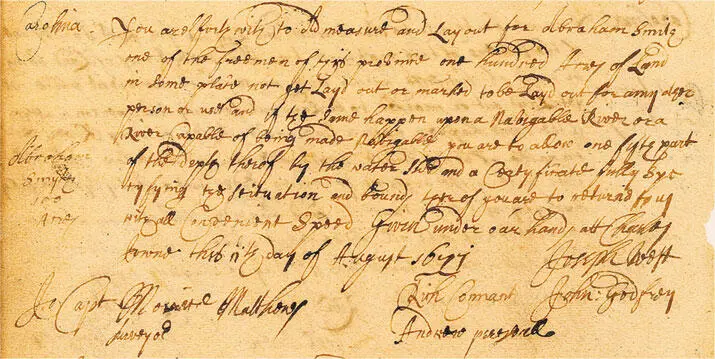 Carolina.
You are forthwith to Admeasure and Layout for Abraham Smith
one of the freemen of this province one hundred Acres of Land
in some place not yet Layd out or marked to be Layd out for any other
person or use and if the same happen upon a Navigable River or a
River capable of being made Navigable you are to allow one fifth part
of the depth thereof by the water side and a Certyficate fully spe
cyfying the scituation and bounds thereof you are to returne to us
with all Convenient Speed Given under our hands at Charles
towne this 11th day of August 1677
Abraham
Smyth
100
Acres
Joseph West
To Capt Mourice Mathews
surveyor
Rich Conant John: Godfrey
Andrew percivall